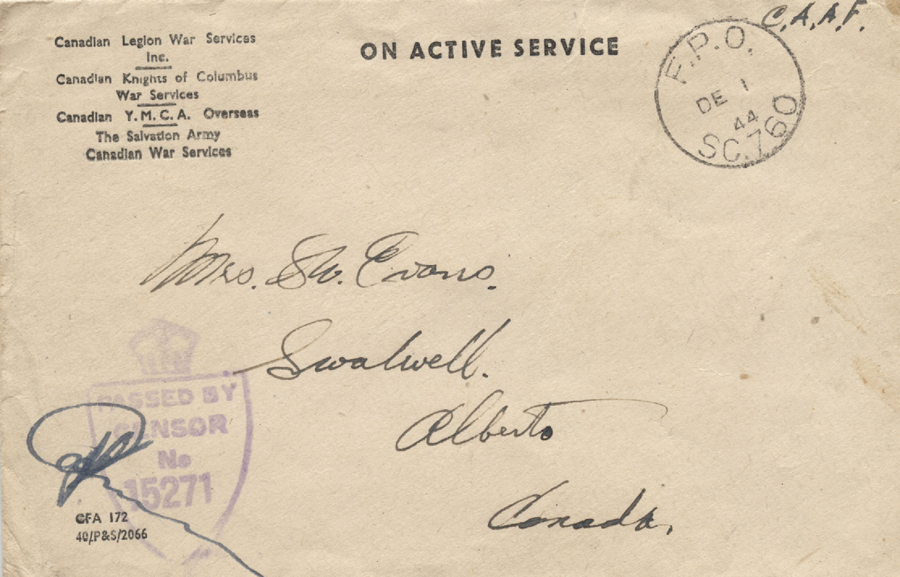 Canadian Legion War Services
Inc.
Canadian Knights of Columbus
War Services
Canadian Y.M.C.A. Overseas
The Salvation Army
Canadian War Services
ON ACTIVE SERVICE
C.A.A.F.
F.P.O.
DE 1
44
SC.760
Mrs. S.W. Evans.
Swalwell.
Alberta
Canada.
PASSED BY
CENSOR
No
15271
CFA 172
40/P&S/2066